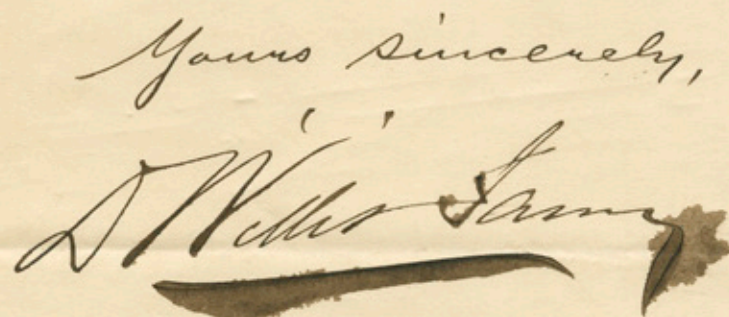 Yours sincerely,
D Willis James